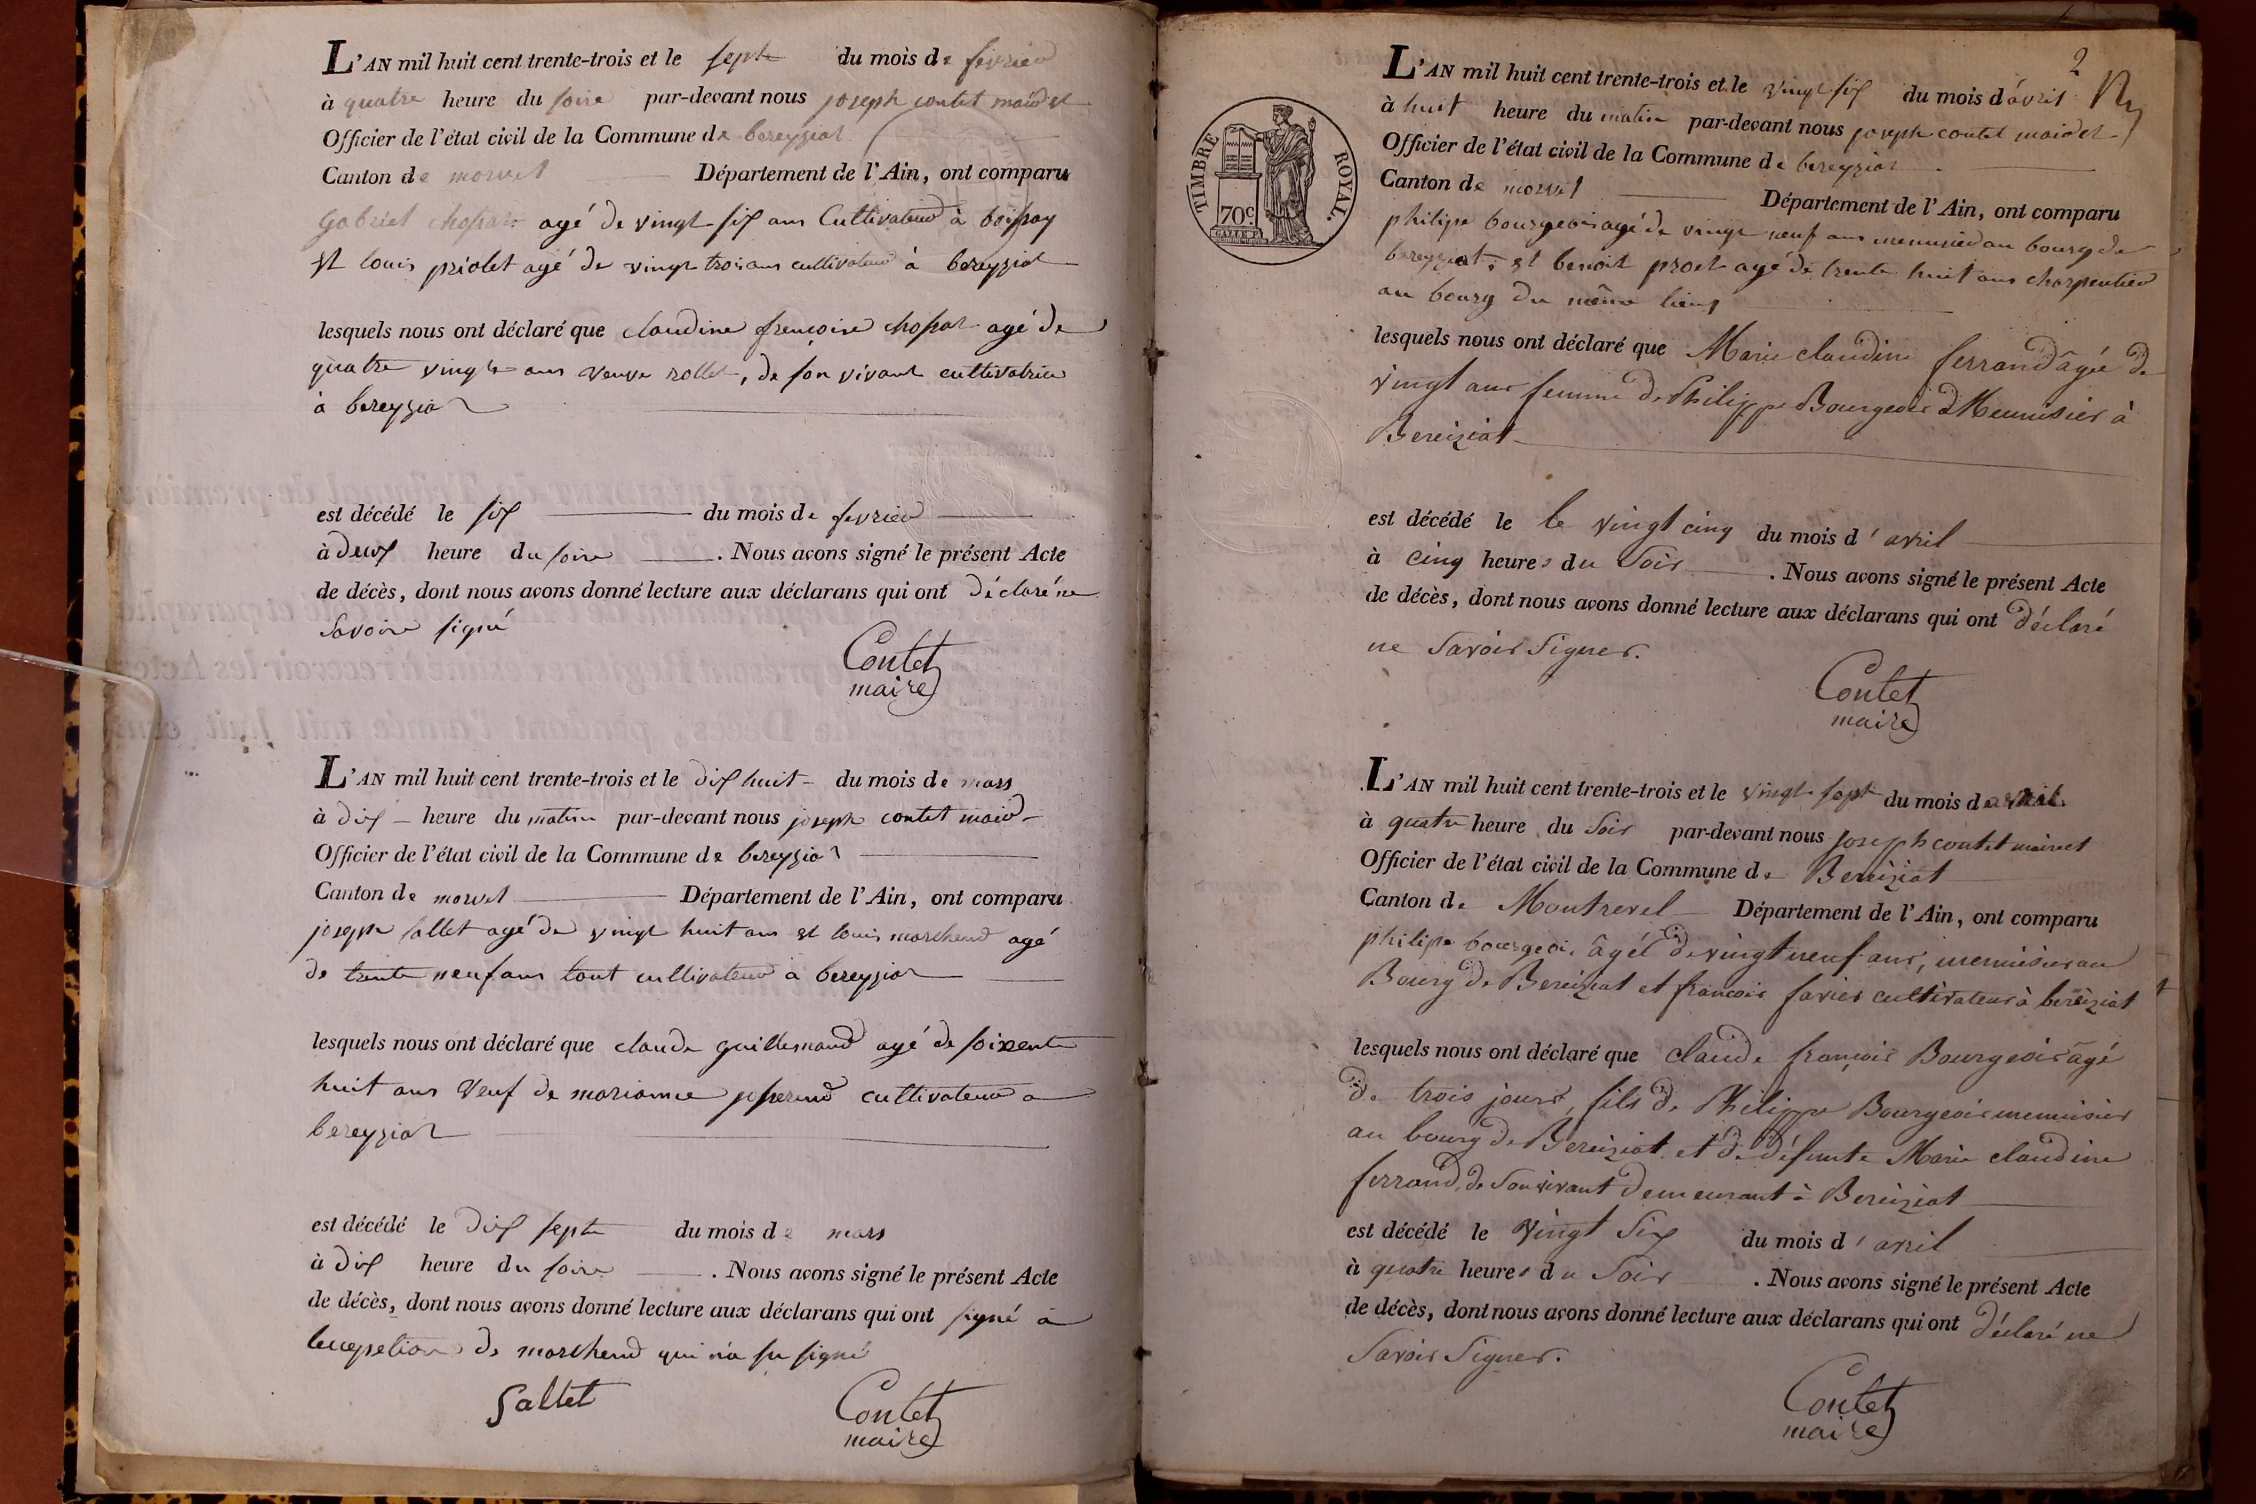 L'AN mil huit cent trente-trois et le sept du mois de fevrier
à quatre heure du soire par-devant nous joseph contet maire et
Officier de l'état civil de la Commune de bereyziat
Canton de morvel Département de l'Ain, ont comparu
gabriel chossat agé de vingt-six ans Cultivateur à boissey
et louis priolet agé de vingt trois ans cultivateur à bereyziat
lesquels nous ont déclaré que claudine françoise chossat agé de
quatre vingts ans veuve rollet, de son vivant cultivatrice
à bereyziat
est décédé le six du mois de fevrier
à deux heure du soire . Nous avons signé le présent Acte
de décès, dont nous avons donné lecture aux déclarans qui ont déclaré ne
savoire signé
Contet
maire
L'AN mil huit cent trente-trois et le dix huit du mois de mars
à dix heure du matin par-devant nous joseph contet maire
Officier de l'état civil de la Commune de bereyziat
Canton de morvel Département de l'Ain, ont comparu
joseph sallet agé de vingt huit ans et louis marchend agé
de trente neuf ans tout cultivateur à bereyziat
lesquels nous ont déclaré que claude guillermand agé de soixente
huit ans veuf de marianne josserend cultivateur a
bereyziat
est décédé le dix sept du mois de mars
à dix heure du soire . Nous avons signé le présent Acte
de décès, dont nous avons donné lecture aux déclarans qui ont signé a
lecepetion de marchend qui n'a su signé
Sallet
Contet
maire
2
TIMBRE ROYAL.
70c
L'AN mil huit cent trente-trois et le vingt six du mois d'avril
à huit heure du matin par-devant nous joseph contet maire et
Officier de l'état civil de la Commune de bereyziat
Canton de morvel Département de l'Ain, ont comparu
philipe bourgeois agé de vingt neuf ans menusier au bourg de
bereyziat et benoit prost agé de trente huit ans charpentier
au bourg du même lieux
lesquels nous ont déclaré que Marie claudine ferrand âgée de
vingt ans femme de Philippe Bourgeois Menuisier à
Bereiziat
est décédé le le vingt cinq du mois d'avril
à cinq heures du Soir . Nous avons signé le présent Acte
de décès, dont nous avons donné lecture aux déclarans qui ont déclaré
ne Savoir Signer.
Contet
maire
L'AN mil huit cent trente-trois et le vingt sept du mois d avril
à quatre heure du Soir par-devant nous joseph contet maire et
Officier de l'état civil de la Commune de Bereiziat
Canton de Montrevel Département de l'Ain, ont comparu
philipe bourgeois âgé de vingt neuf ans, menuisier au
Bourg de Bereiziat et francois favier cultivateur à béreiziat
lesquels nous ont déclaré que claude françois Bourgeois âgé
de trois jours, fils de Philippe Bourgeois menuisier
au bourg de Bereiziat et de défunte Marie claudine
ferrand, de Son vivant demeurant à Bereiziat
est décédé le vingt Six du mois d'avril
à quatre heures du Soir . Nous avons signé le présent Acte
de décès, dont nous avons donné lecture aux déclarans qui ont déclaré ne
Savoir Signer.
Contet
maire